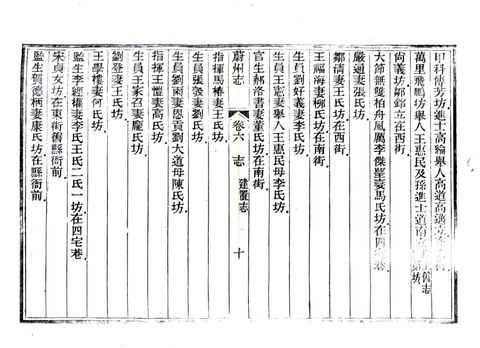 甲科傳芳坊進士高綸舉人高道高邁立在
萬里飛鵬坊舉人王惠民及孫進士道南立
尙義坊鄒銘立在西街
大節無雙柏舟風厲李傑聚妻馬氏坊在四宅巷
嚴通妻張氏坊
鄒清妻王氏坊在西街
王福海妻柳氏坊在南街
生員劉好義妻李氏坊
生員王憲妻舉人王惠民母李氏坊
官生郝洛書妻董氏坊在南街
蔚州志
卷六 志 建置志 十
指揮馬椿妻王氏坊
生員張瑴妻劉氏坊
生員劉兩妻恩貢劉大道母陳氏坊
指揮王愷妻高氏坊
生員王家召妻龐氏坊
劉登妻王氏坊
王學樓妻何氏坊
監生李經權妻李氏王氏二氏一坊在四宅巷
宋貞女坊在東街衞縣衙前
監生賀德柄妻康氏坊在縣衙前